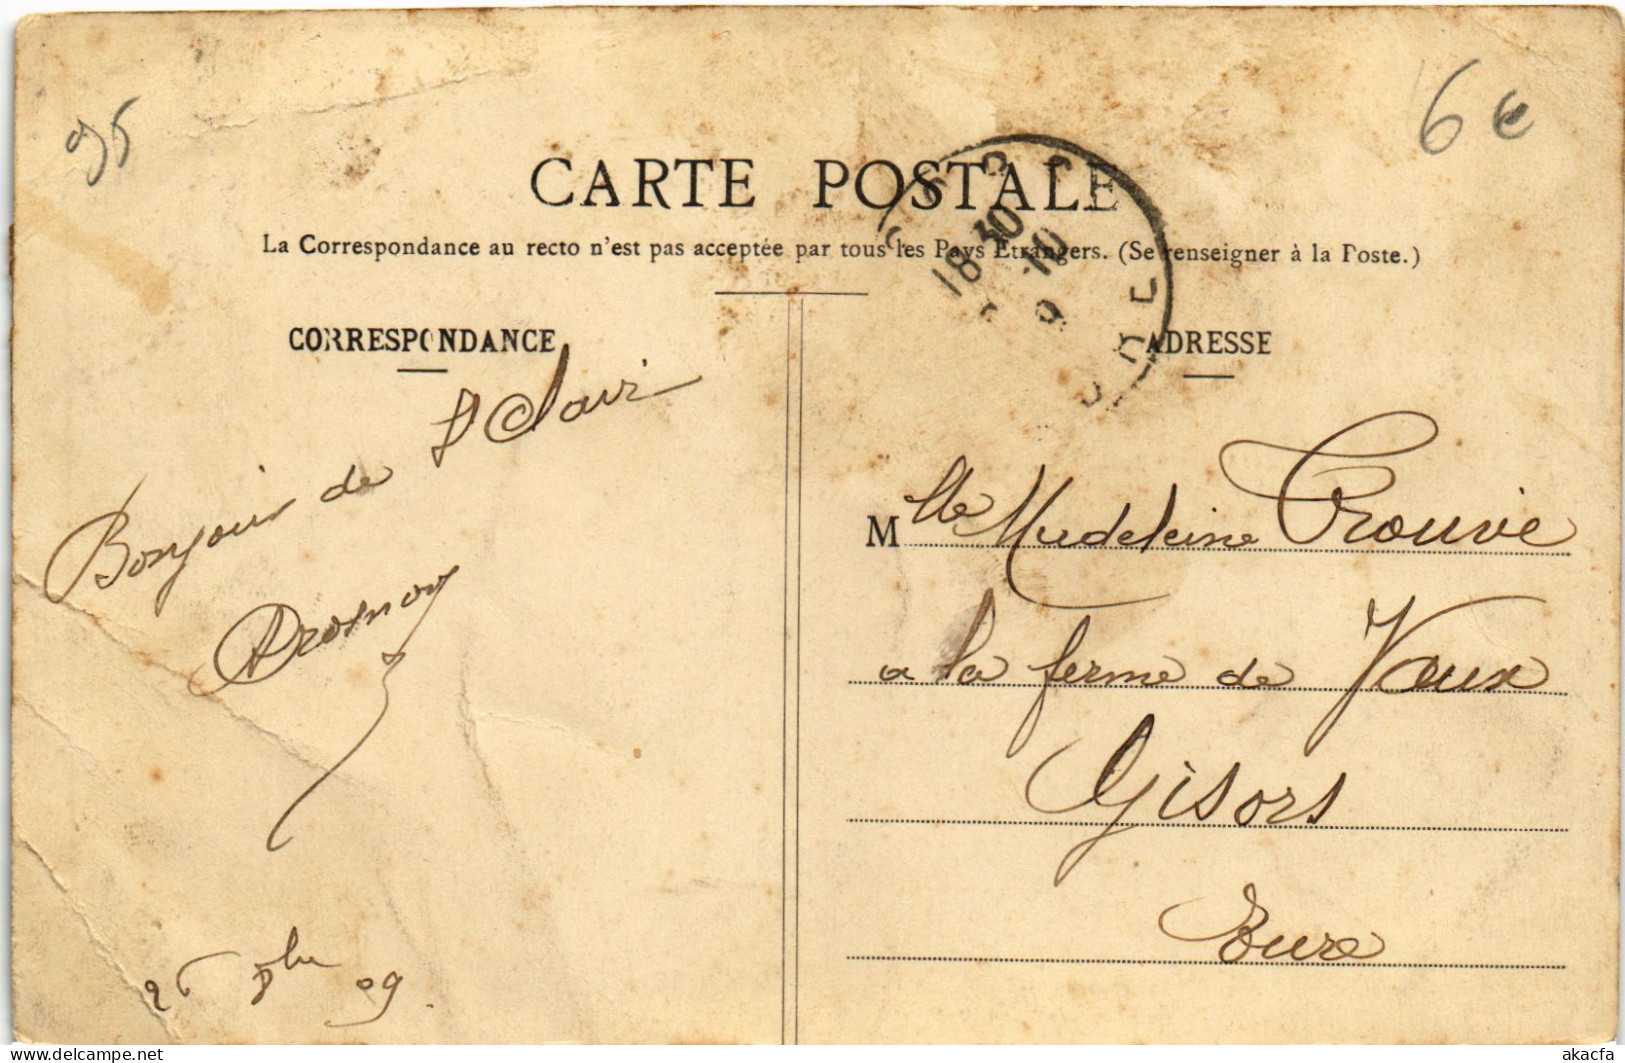 95
6€
CARTE POSTALE
La Correspondance au recto n'est pas acceptée par tous les Pays Etrangers. (Se renseigner à la Poste.)
18 30
CORRESPONDANCE
ADRESSE
Bonjour de St Clair
Drosnoy
26 9bre 09.
Mlle Madeleine Prouvé
a la ferme de Vaux
Gisors
Eure
delcampe.net
akacfa